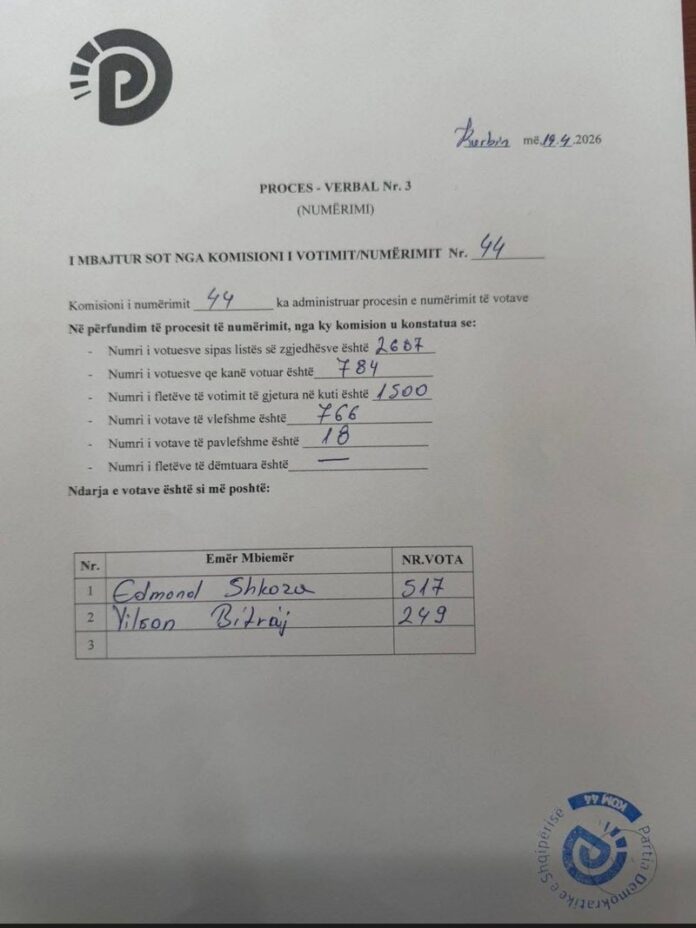 Kurbin më, 19.4.2026
PROCES - VERBAL Nr. 3
(NUMËRIMI)
I MBAJTUR SOT NGA KOMISIONI I VOTIMIT/NUMËRIMIT Nr. 44
Komisioni i numërimit 44 ka administruar procesin e numërimit të votave
Në përfundim të procesit të numërimit, nga ky komision u konstatua se:
- Numri i votuesve sipas listës së zgjedhësve është 2687
- Numri i votuesve qe kanë votuar është 784
- Numri i fletëve të votimit të gjetura në kuti është 1500
- Numri i votave të vlefshme është 766
- Numri i votave të pavlefshme është 18
- Numri i fletëve të dëmtuara është —
Ndarja e votave është si më poshtë:
Nr. Emër Mbiemër NR.VOTA
1 Edmond Shkoza 517
2 Vilson Bitraj 249
3
KOM 44
Partia Demokratike e Shqipërisë